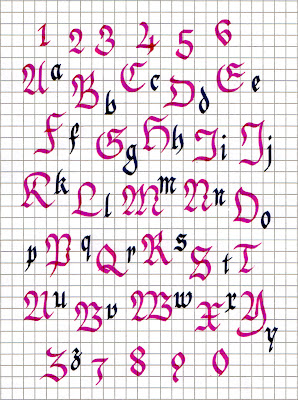 1 2 3 4 5 6
A a B b C c D d E e
F f G g H h I i J j
K k L l M m N n O o
p P q Q r R s S t T
U u V v W w X x Y y
Z z 7 8 9 0